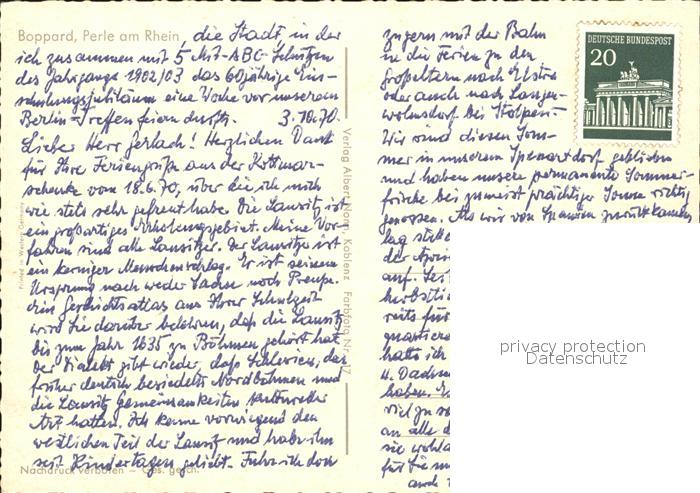 Boppard, Perle am Rhein, die Stadt, in der
ich zusammen mit 5 Mit-ABC-Schützen
des Jahrgangs 1902/03 das 60jährige Ein-
schulungsjubiläum eine Woche vor unserem
Berlin-Treffen feiern durfte. 3.10.70.
Lieber Herr Gerlach! Herzlichen Dank
für Ihre Feriengrüße aus der Kottmar-
schenke vom 18.6.70, über die ich mich
wie stets sehr gefreut habe. Die Lausitz ist
ein großartiges Erholungsgebiet. Meine Vor-
fahren sind alle Lausitzer. Der Lausitzer ist
ein kerniger Menschenschlag. Er ist seinem
Ursprung nach weder Sachse noch Preuße.
Ein Geschichtsatlas aus Ihrer Schulzeit
wird Sie darüber belehren, daß die Lausitz
bis zum Jahr 1635 zu Böhmen gehört hat.
Der Dialekt gibt wieder, daß Schlesien, das
früher deutsch besiedelte Nordböhmen und
die Lausitz Gemeinsamkeiten
Art hatten. Ich kenne vorwiegend den
westlichen Teil der Lausitz und habe ihn
seit Kindertagen geliebt. Fuhr ich doch
Nachdruck verboten – Ges. gesch.
Printed in Western Germany
Verlag Albert Koblenz Farbfoto Nr. 17
mit der Bahn
in die Ferien zu den
Großeltern nach Elstra
oder auch nach Langen-
wolmsdorf bei Stolpen.
Wir sind diesen Som-
mer in unserem Spessartdorf geblieben
und haben unsere permanente Sommer-
frische bei zumeist prächtiger Sonne richtig
genossen. Als wir von Spanien zurückkamen
lag
der April
auf. Sei
herbstli
reits für
quartiere
hatte ich
u. Dachs
haben. E
viel zu s
an alle d
sie wohl
für Sie
auch
DEUTSCHE BUNDESPOST
20
privacy protection
Datenschutz